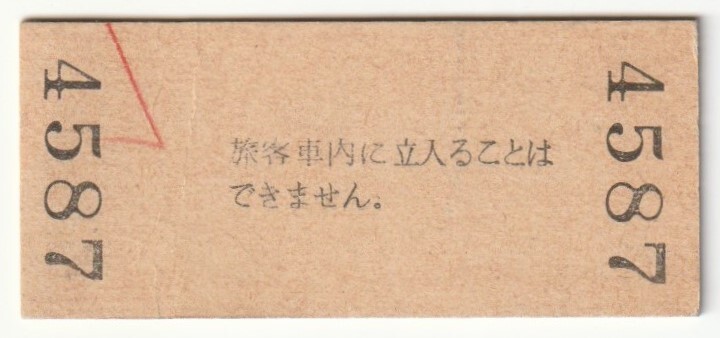 4587
旅客車内に立入ることは
できません。
4587